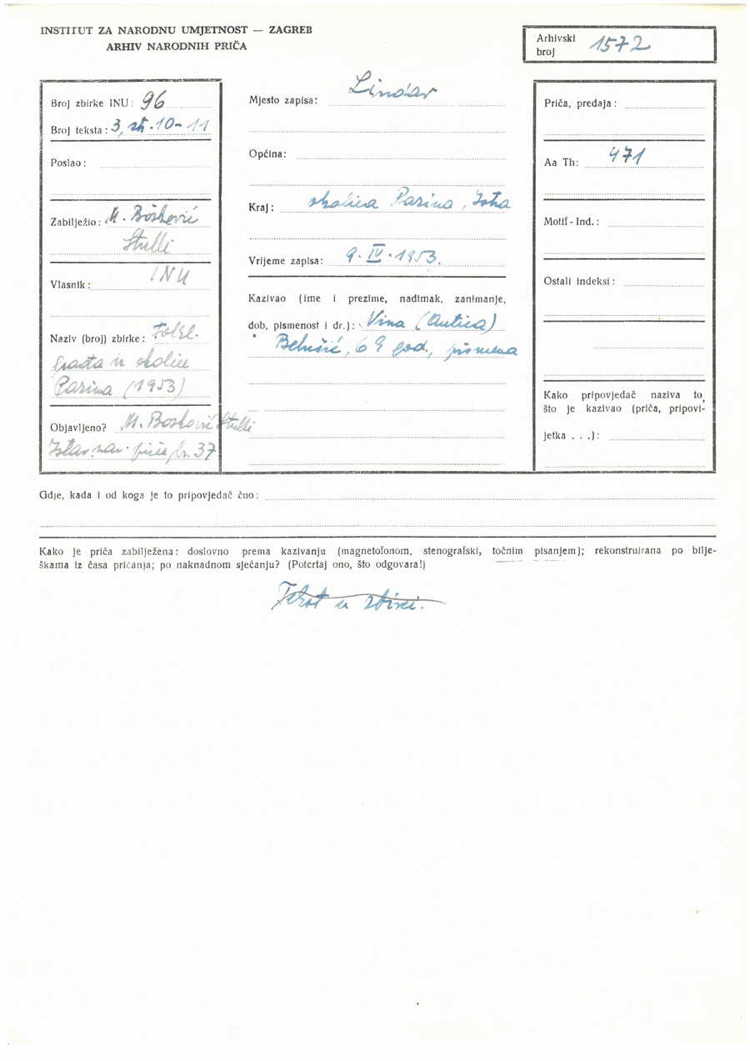 INSTITUT ZA NARODNU UMJETNOST — ZAGREB
ARHIV NARODNIH PRIČA
Arhivski broj 1572
Broj zbirke INU: 96
Broj teksta: 3, str. 10-11
Poslao:
Zabilježio: M. Bošković
Stulli
Vlasnik: INU
Naziv (broj) zbirke: Folkl.
građa iz okolice
Pazina (1953)
Objavljeno? M. Bošković Stulli
br. 37
Mjesto zapisa: Lindar
Općina:
Kraj: okolica Pazina, Istra
Vrijeme zapisa: 9. IV. 1953.
Kazivao (ime i prezime, nadimak, zanimanje,
dob, pismenost i dr.): Vina (Antica)
Belušić, 69 god, pismena
Priča, predaja:
Aa Th: 471
Motif-Ind.:
Ostali indeksi:
Kako pripovjedač naziva to,
što je kazivao (priča, pripovi-
jetka . . .):
Gdje, kada i od koga je to pripovjedač čuo:
Kako je priča zabilježena: doslovno prema kazivanju (magnetofonom, stenografski, točnim pisanjem); rekonstruirana po bilje-
škama iz časa pričanja; po naknadnom sjećanju? (Potcrtaj ono, što odgovara!)
Tekst u zbirci.